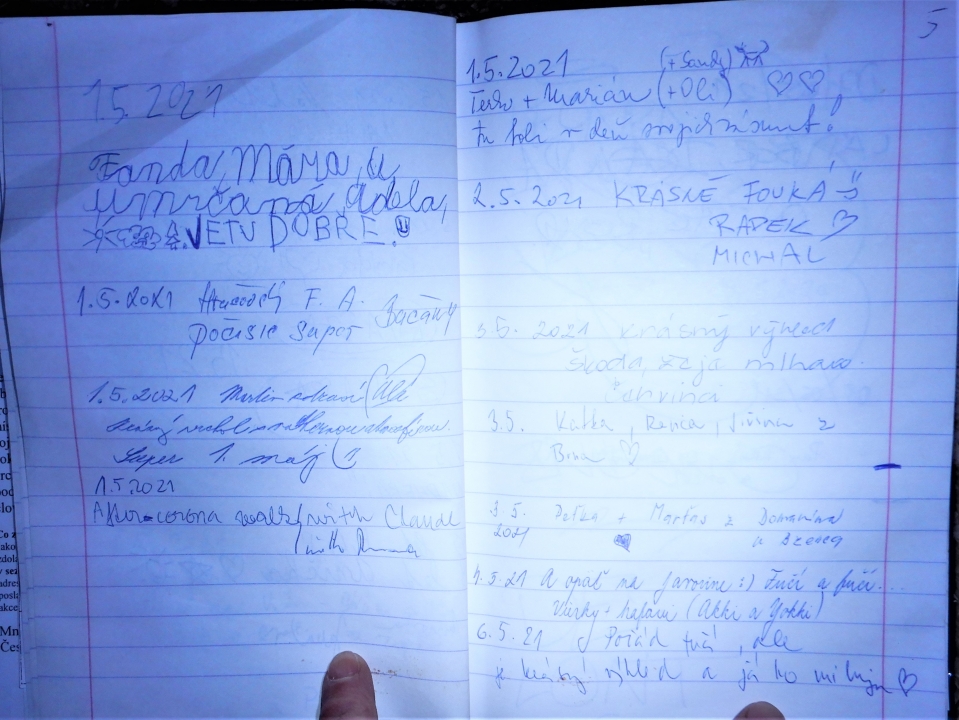 1.5.2021
Fanda, Mára, a
umrčaná Adéla,
VETU DOBRE!
1.5.2021 F. A.
Počasie Super
1.5.2021 Martin
Super 1. máj
1.5.2021
After-corona walk with Claude
with
5
1.5.2021 (+Sandy)
Terka + Marián (+Oli)
tu boli v deň svojich zásnub!
2.5.2021 KRÁSNĚ FOUKÁ
RADEK
MICHAL
3.5. 2021 krásný výhled
škoda, že je mlhavo.
3.5. Katka, Renča, Jiřina z
Brna
3.5. Peťka + Marťas z Domanína
2021 u Bzenec
4.5.21 A opäť na Javorine :) Fučí a fučí...
(Akki a Yokki)
6.5.21 Pořád fučí, ale
je krásný výhled a já ho miluju